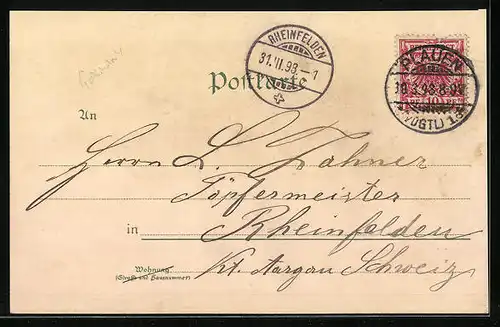 RHEINFELDEN
31.III.98.-1
Postkarte
PLAUEN
30.3.98.8-9N
(VOGTL) 1.d.
10
An
Herrn L. Zahner
Töpfermeister
in Rheinfelden
Wohnung
(Straße und Hausnummer)
Kt. Aargau Schweiz